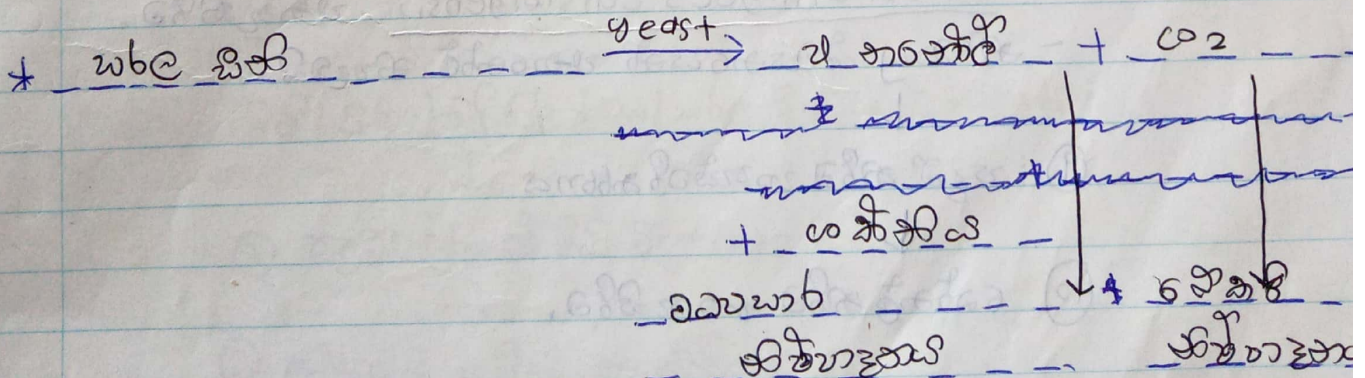 * සරල සීනි yeast → එතනෝල් + CO2
+ ශක්තිය
මධ්‍යසාර * බේකරි
නිෂ්පාදනය නිෂ්පාදන